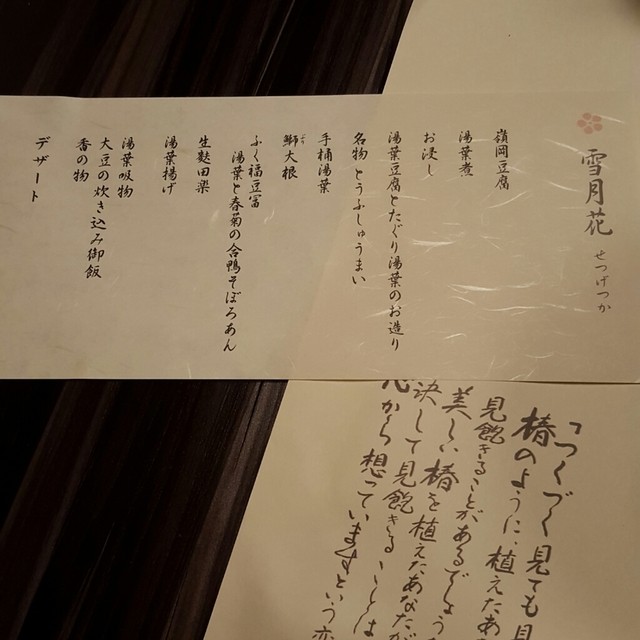 雪月花 せつげつか
嶺岡豆腐
湯葉煮
お浸し
湯葉豆腐とたぐり湯葉のお造り
名物 とうふしゅうまい
手桶湯葉
鰤大根
ふく福豆冨
湯葉と春菊の合鴨そぼろあん
生麩田楽
湯葉揚げ
湯葉吸物
大豆の炊き込み御飯
香の物
デザート
「つくづく見ても見
椿のように、植えたあ
見飽きることがあるでしょう
美しい椿を植えたあなたが
決して見飽きることは
心から想っていますという恋